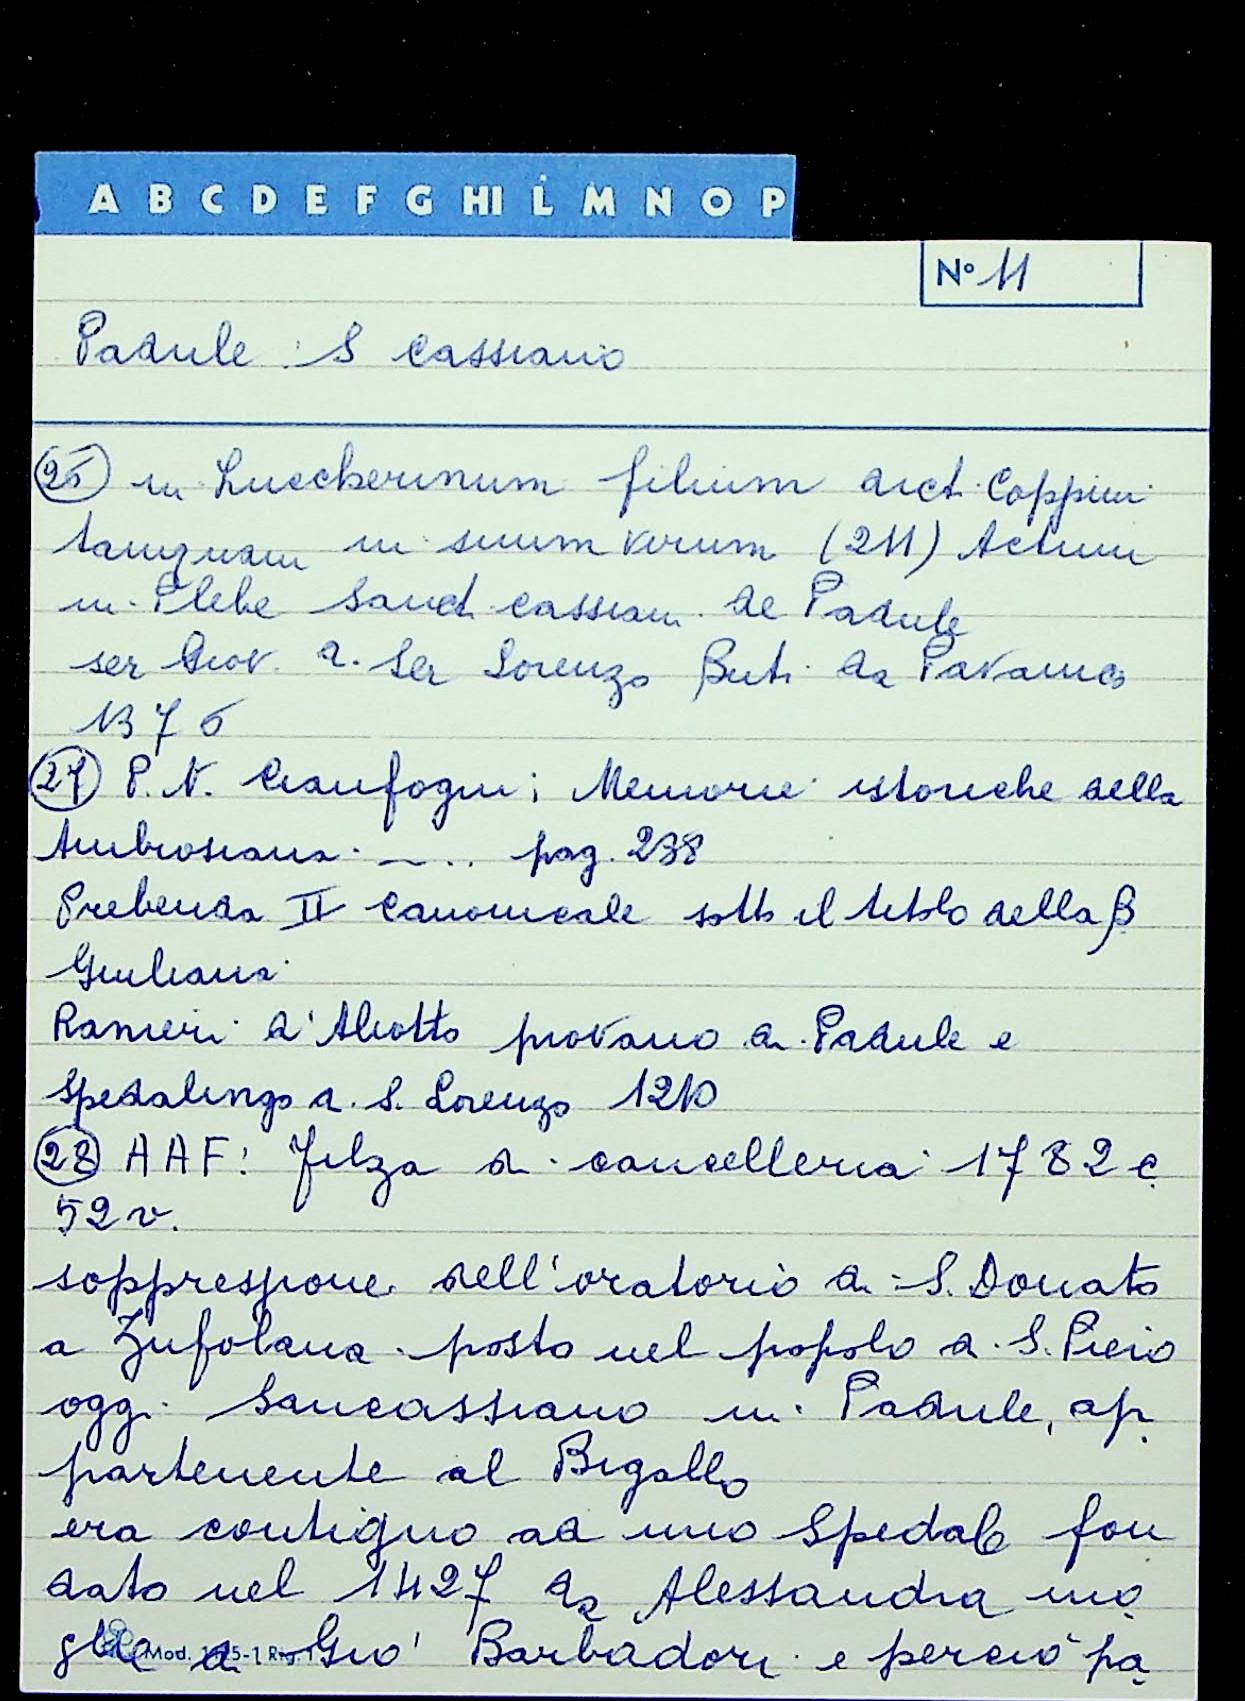 A B C D E F G HI L M N O P
N° 11
Padule : S Cassiano
26 in Luccherinum filium dict. Coppini
tamquam in suum virum (211) Actum
in Plebe Sanct. Cassiani de Padule
ser Giov. di Ser Lorenzo Buti da
1376
27 P. N. Cianfogni ; Memorie istoriche della
Ambrosiana ... pag. 238
Prebenda II canonicale sotto il titolo della B
Giuliana
Ranieri d'Aliotto piovano di Padule e
Spedalingo di S. Lorenzo
28 A A F : Filza di cancelleria 1782 c
52 v.
soppressione dell'oratorio di S. Donato
a Zufolana posto nel popolo di S. Piero
oggi Sancassiano in Padule, ap
partenente al Bigallo
era contiguo ad uno Spedale fon
dato nel 1427 da Alessandra mo
glie di Gio' Barbadori e perciò pa
Mod.